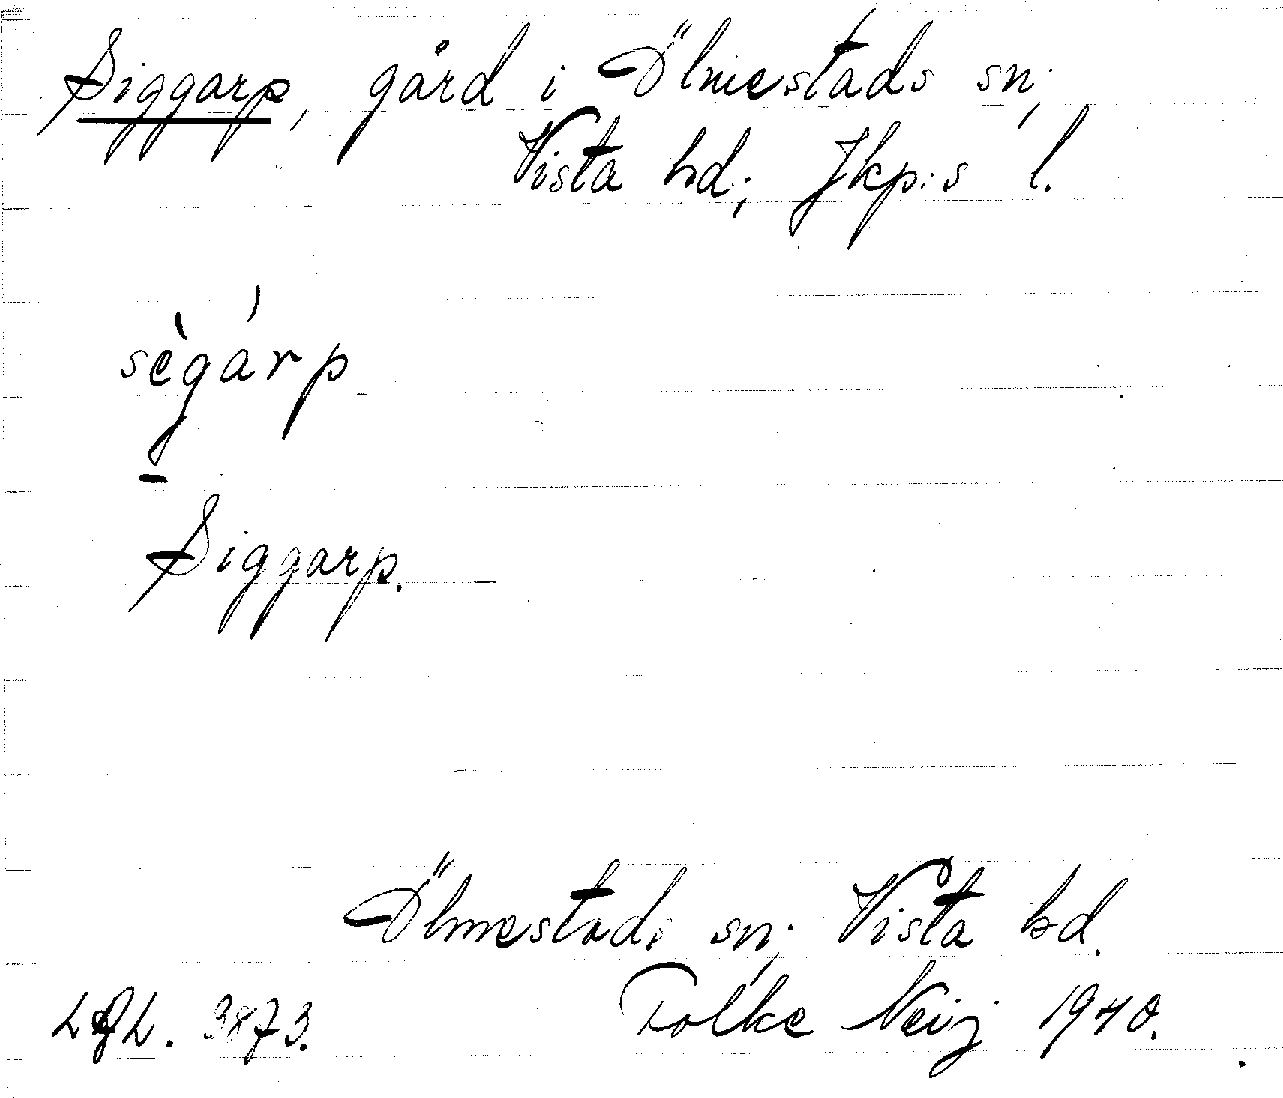 Siggarp, gård i Ölmestads sn;
Vista hd; Jkp:s l.
sègárp
Siggarp.
Ölmestads sn; Vista hd.
3873. Folke Neij 1940.